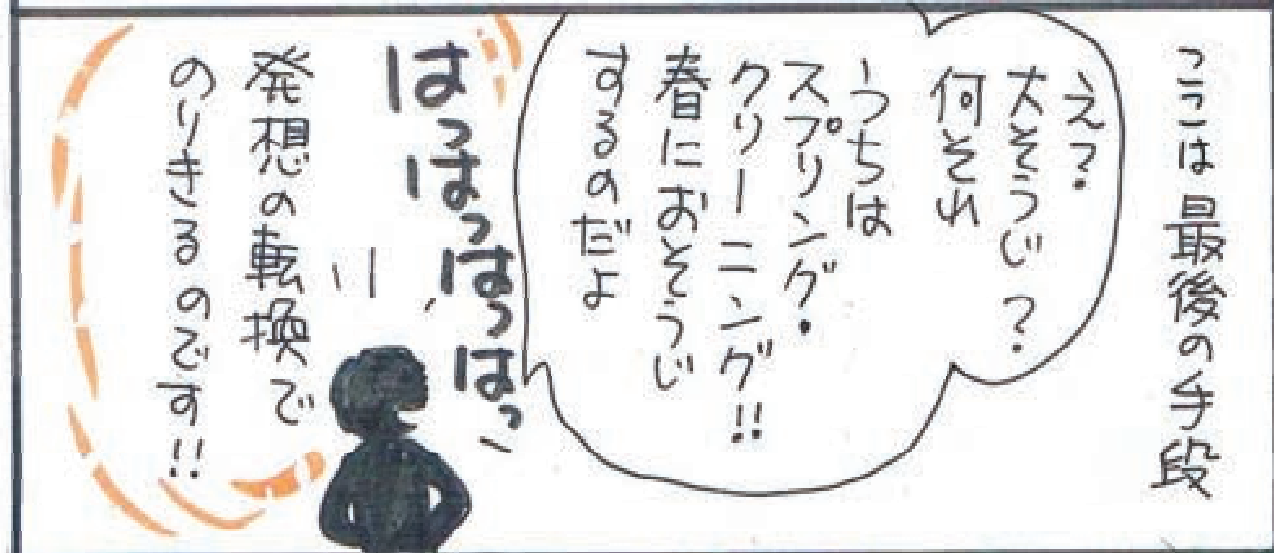 ここは最後の手段
え？
大そうじ？
何それ
うちは
スプリング・
クリーニング!!
春におそうじ
するのだよ
はっはっはっはっ
発想の転換で
のりきるのです!!